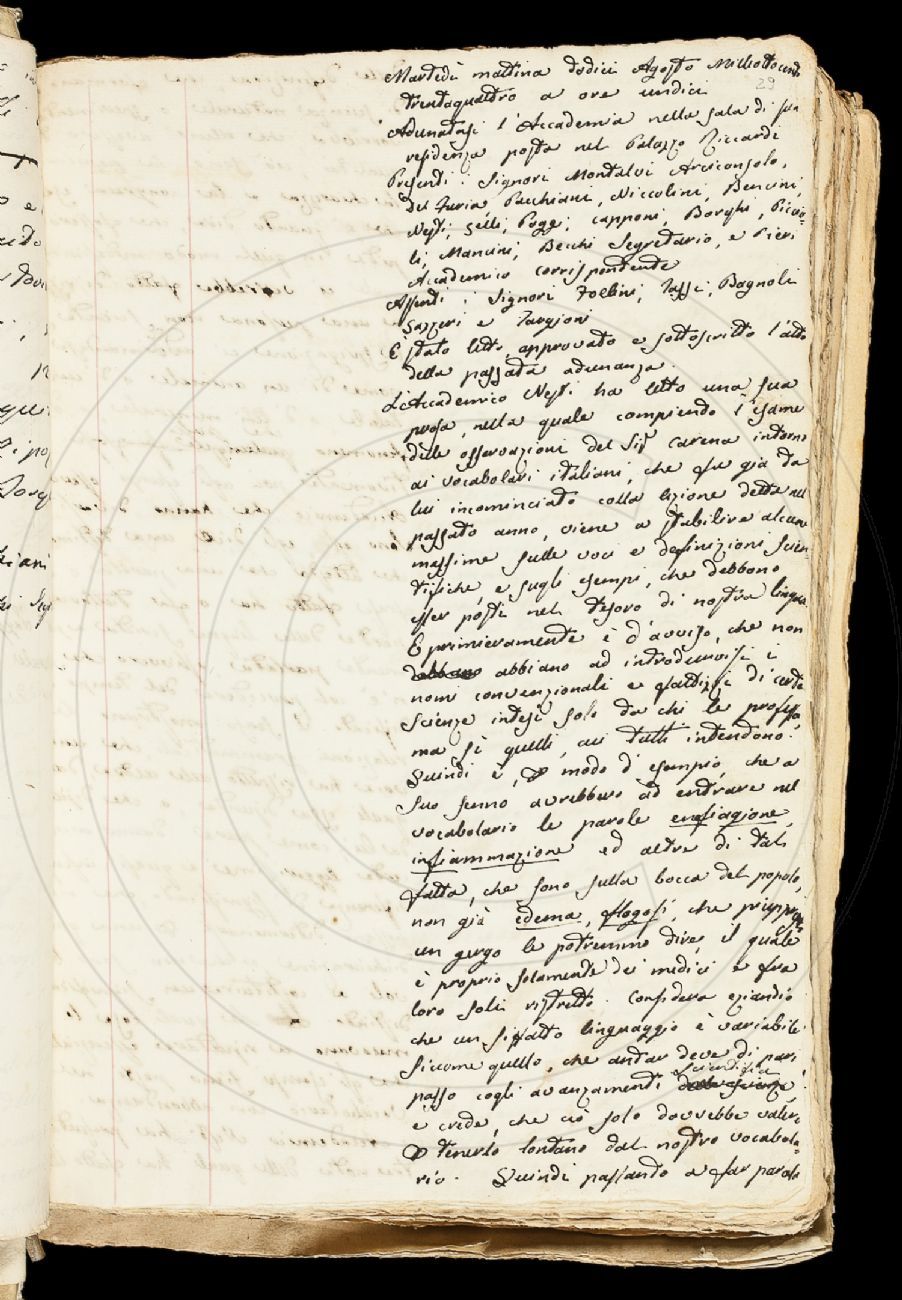 29
Martedì mattina dodici Agosto Milleottocento
trentaquattro a ore undici
Adunatasi l'Accademia nella sala di sua
residenza posta nel Palazzo Riccardi
Presenti: Signori Montalvi Arciconsolo,
del Furia Pacchiani, Niccolini, Bencini,
Nesti, Selli, Poggi, Capponi, Borghi, Piccio-
li, Mancini, Becchi Segretario, e Pieri
Accademico corrispondente
Assenti: Signori Follini, Tassi, Bagnoli
Gazzeri e Targioni
È stato letto, approvato e sottoscritto l'atto
della passata adunanza.
L'Accademico Nesti ha letto una sua
prosa, nella quale compiendo l'esame
delle osservazioni del Sig. Carena intorno
ai vocabolari italiani, che fu già da
lui incominciato colla lezione detta nel
passato anno, viene a stabilire alcune
massime sulle voci e definizioni scien-
tifiche, e sugli esempi, che debbono
esser posti nel tesoro di nostra lingua.
E primieramente è d'avviso, che non
abbiano ad introdurvisi i
nomi convenzionali e fattizzi di certe
scienze intesi solo da chi le professa,
ma sì quelli, cui tutti intendono.
Quindi è, p modo d'esempio, che a
suo senno avrebbero ad entrare nel
vocabolario le parole enfiagione,
infiammazione ed altre di tal
fatta, che sono sulla bocca del popolo,
non già edema, flogosi, che piuttosto
un gergo le potremmo dire, il quale
è proprio solamente dei medici e fra
loro soli ristretto. Considera eziandio
che un siffatto linguaggio è variabile
siccome quello, che andar deve di pari
passo cogli avanzamenti delle scienze scientifici,
e crede, che ciò solo dovrebbe valere
p tenerlo lontano dal nostro vocabola-
rio. Quindi passando a far parola